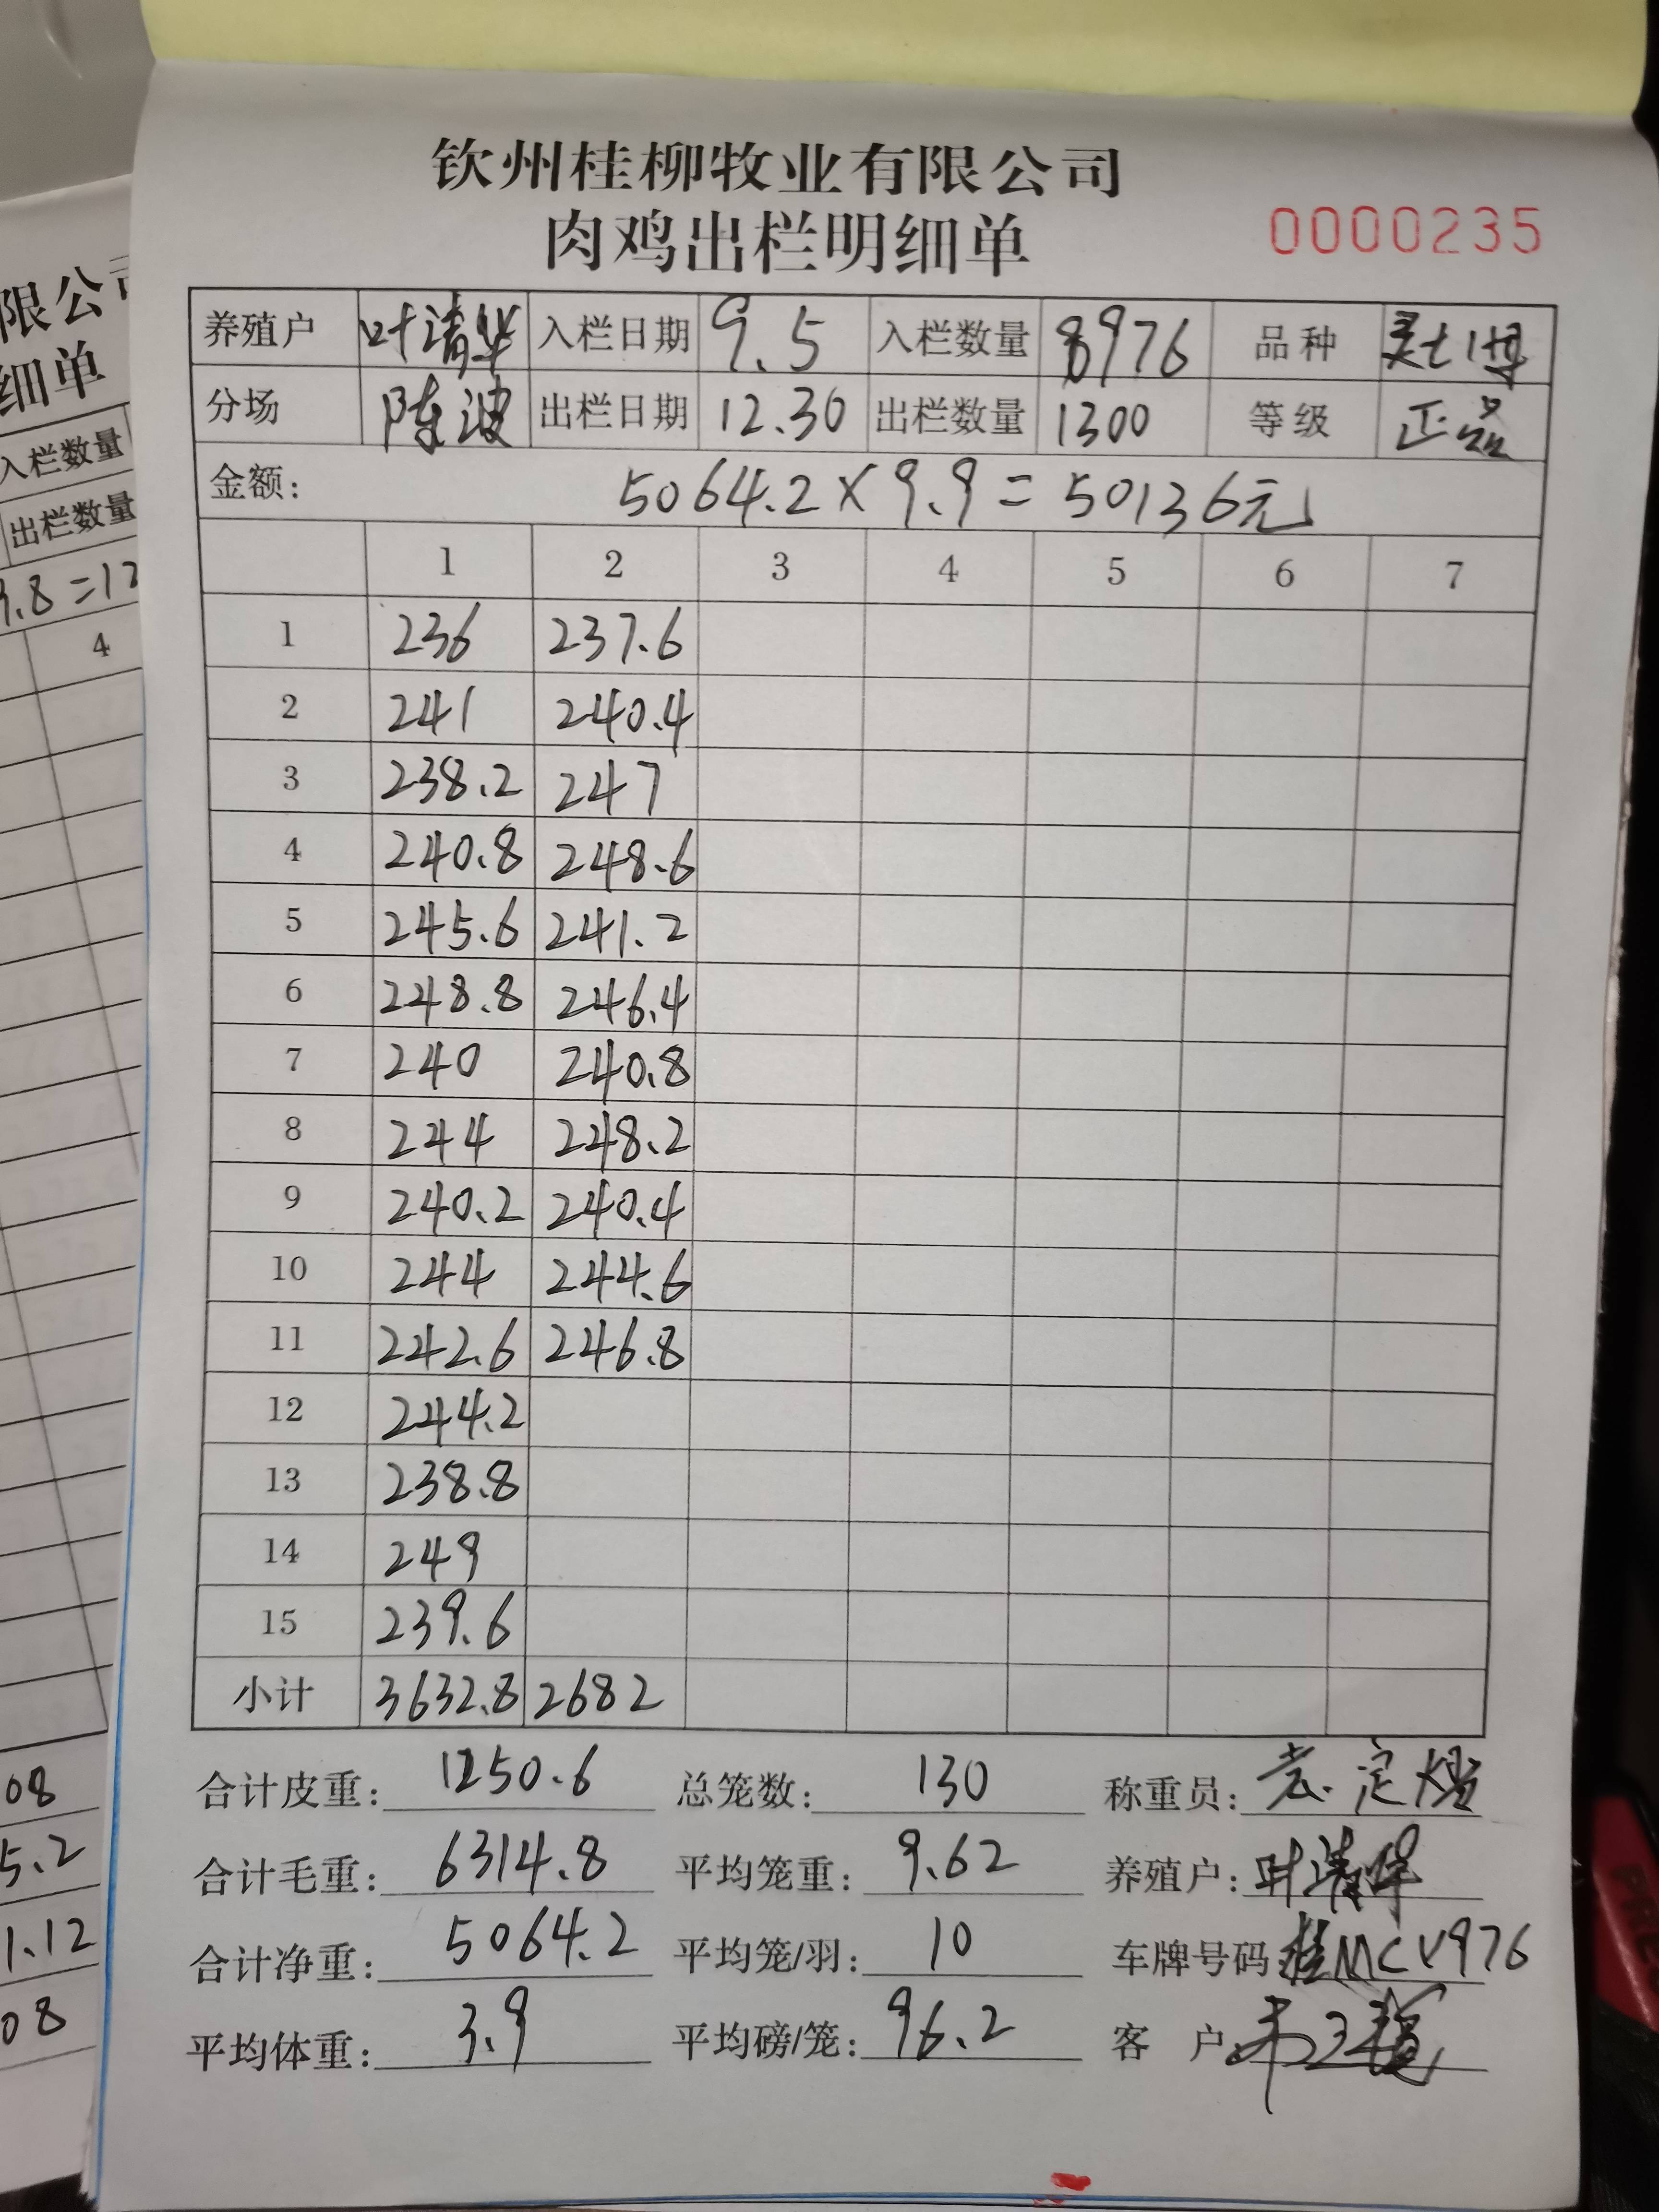 钦州桂柳牧业有限公司
肉鸡出栏明细单
0000235
养殖户 叶清华 入栏日期 9.5 入栏数量 8976 品种
分场 陈波 出栏日期 12.30 出栏数量 1300 等级 正品
金额: 5064.2×9.9=50136元
1 2 3 4 5 6 7
1 236 237.6
2 241 240.4
3 238.2 247
4 240.8 248.6
5 245.6 241.2
6 248.8 246.4
7 240 240.8
8 244 248.2
9 240.2 240.4
10 244 244.6
11 242.6 246.8
12 244.2
13 238.8
14 249
15 239.6
小计 3632.8 2682
合计皮重: 1250.6 总笼数: 130 称重员:
合计毛重: 6314.8 平均笼重: 9.62 养殖户: 叶清华
合计净重: 5064.2 平均笼/羽: 10 车牌号码 桂MCV976
平均体重: 3.9 平均磅/笼: 96.2 客 户:
限公司
细单
入栏数量
出栏数量
9.8=12
4
08
5.2
1.12
08